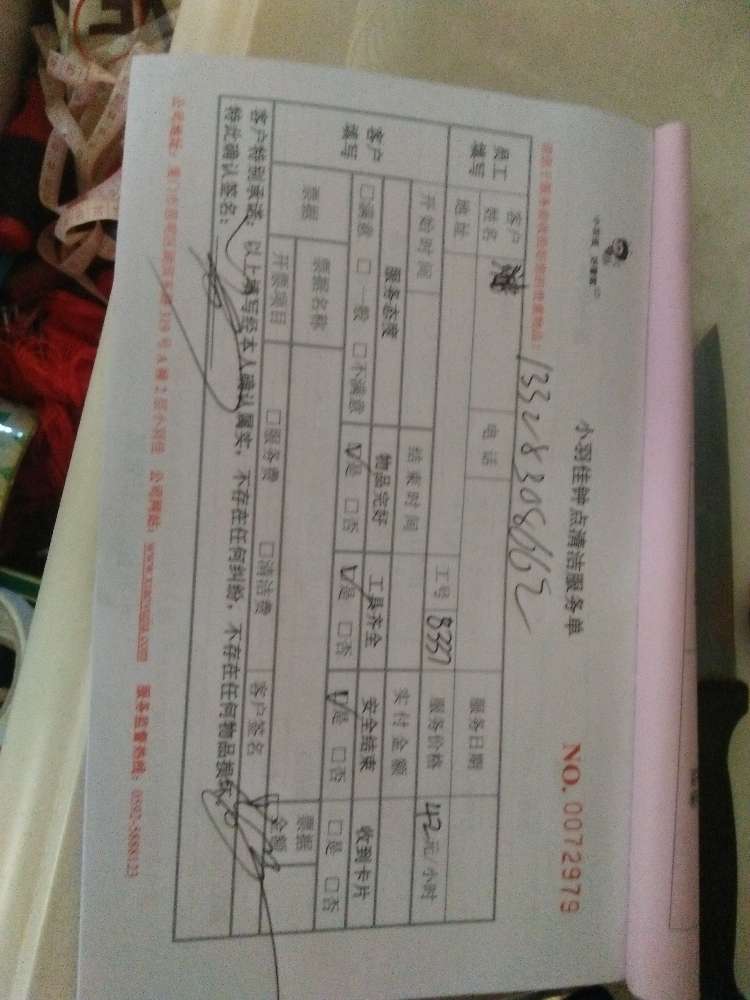 小羽佳钟点清洁服务单
NO. 0072979
13328308662
员工填写 客户姓名 电话 服务日期
地址 工号 8337 服务价格 42元/小时
开始时间 结束时间 实付金额
客户填写 服务态度 物品完好 工具齐全 安全结束 收到卡片
□满意 □一般 □不满意 ☑是 □否 ☑是 □否 ☑是 □否 □是 □否
票据 票据名称 票据金额
开票项目 □服务费 □清洁费 客户签名
客户特别承诺：以上填写经本人确认属实，不存在任何纠纷，不存在任何物品损坏。
特此确认签名：
公司网站：www.xiaoyujia.com 服务监督热线：0592-5888123